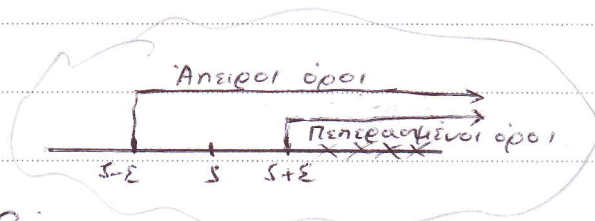 Άπειροι όροι
Πεπερασμένοι όροι
s-ε s s+ε